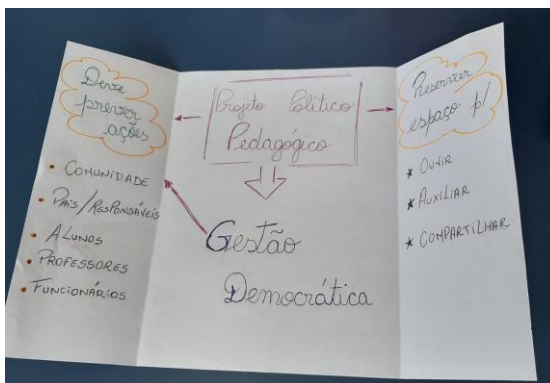 Deve
prever
ações
• COMUNIDADE
• PAIS/RESPONSÁVEIS
• ALUNOS
• PROFESSORES
• FUNCIONÁRIOS
Projeto Político
Pedagógico
Gestão
Democrática
Reservar
espaço p/
* OUVIR
* AUXILIAR
* COMPARTILHAR